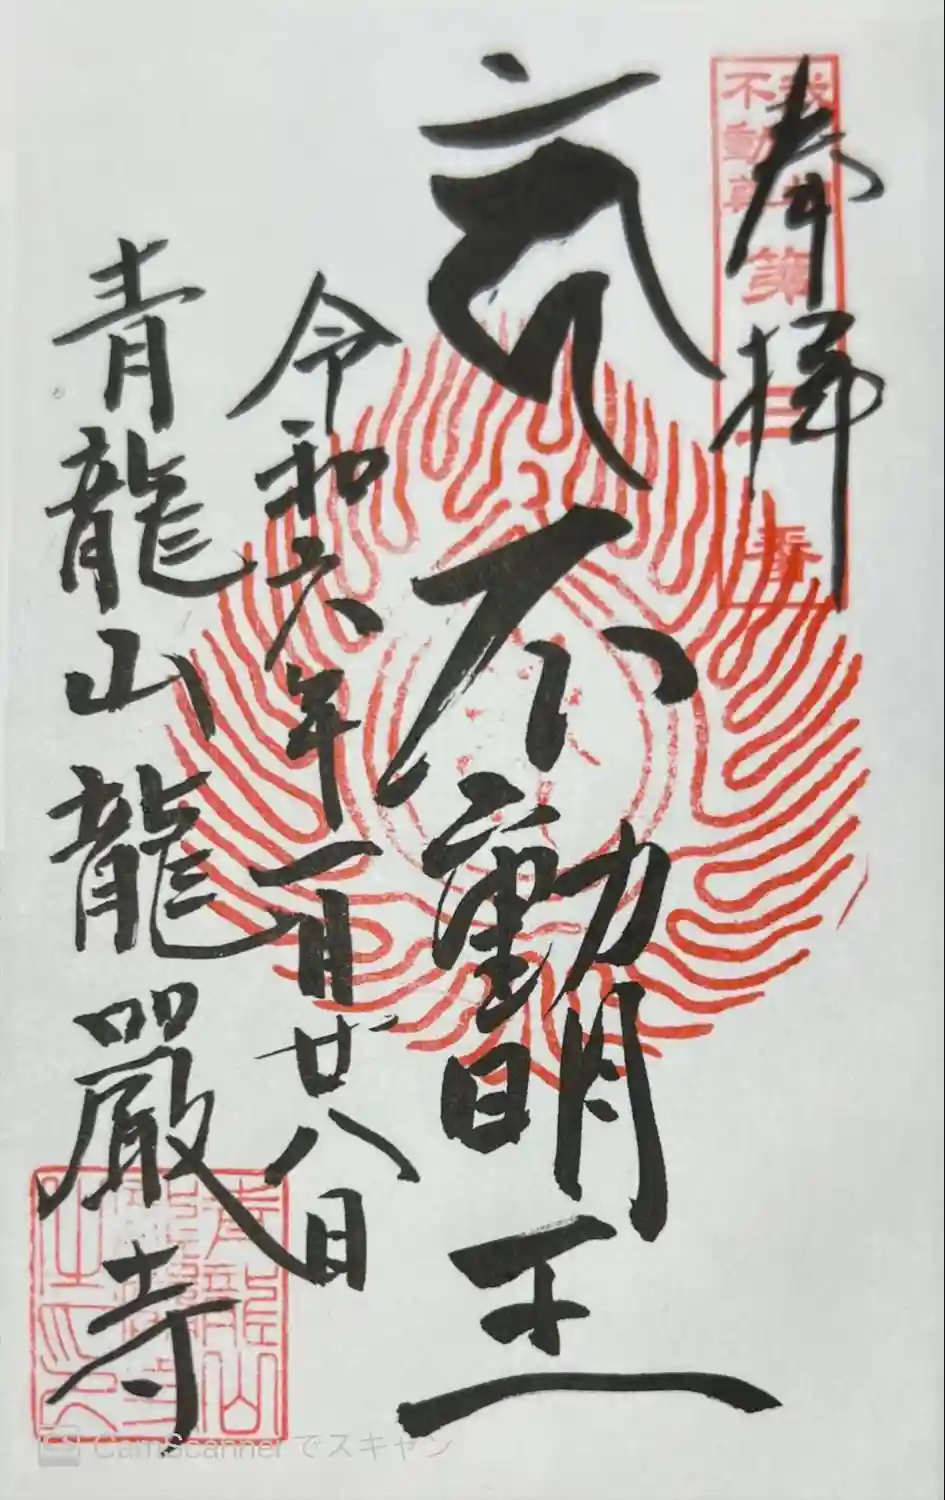 奉拝
不動尊
第三番
不動明王
令和六年一月廿八日
青龍山龍巖寺
CamScanner でスキャン